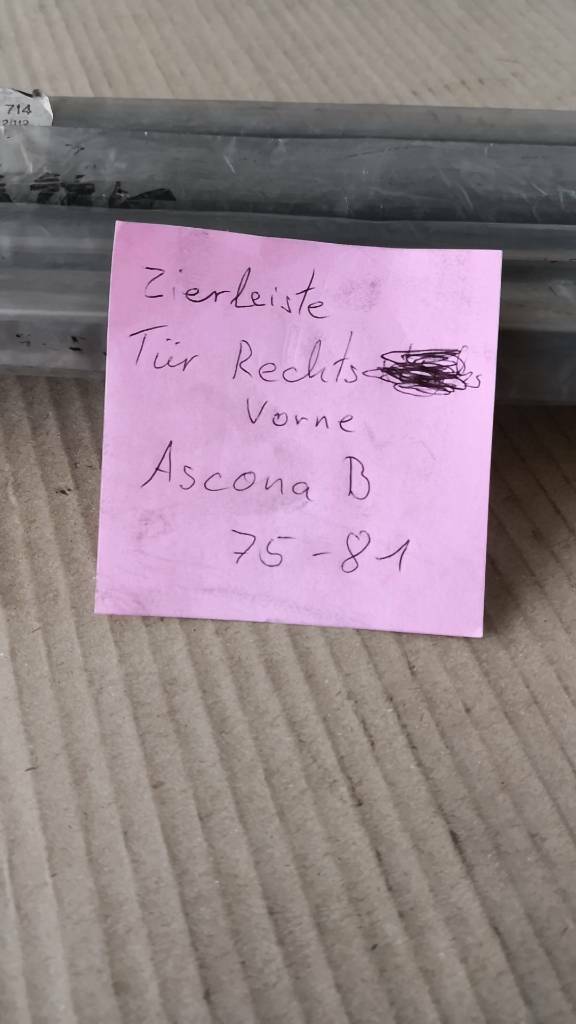 714
Zierleiste
Tür Rechts
Vorne
Ascona B
75-81